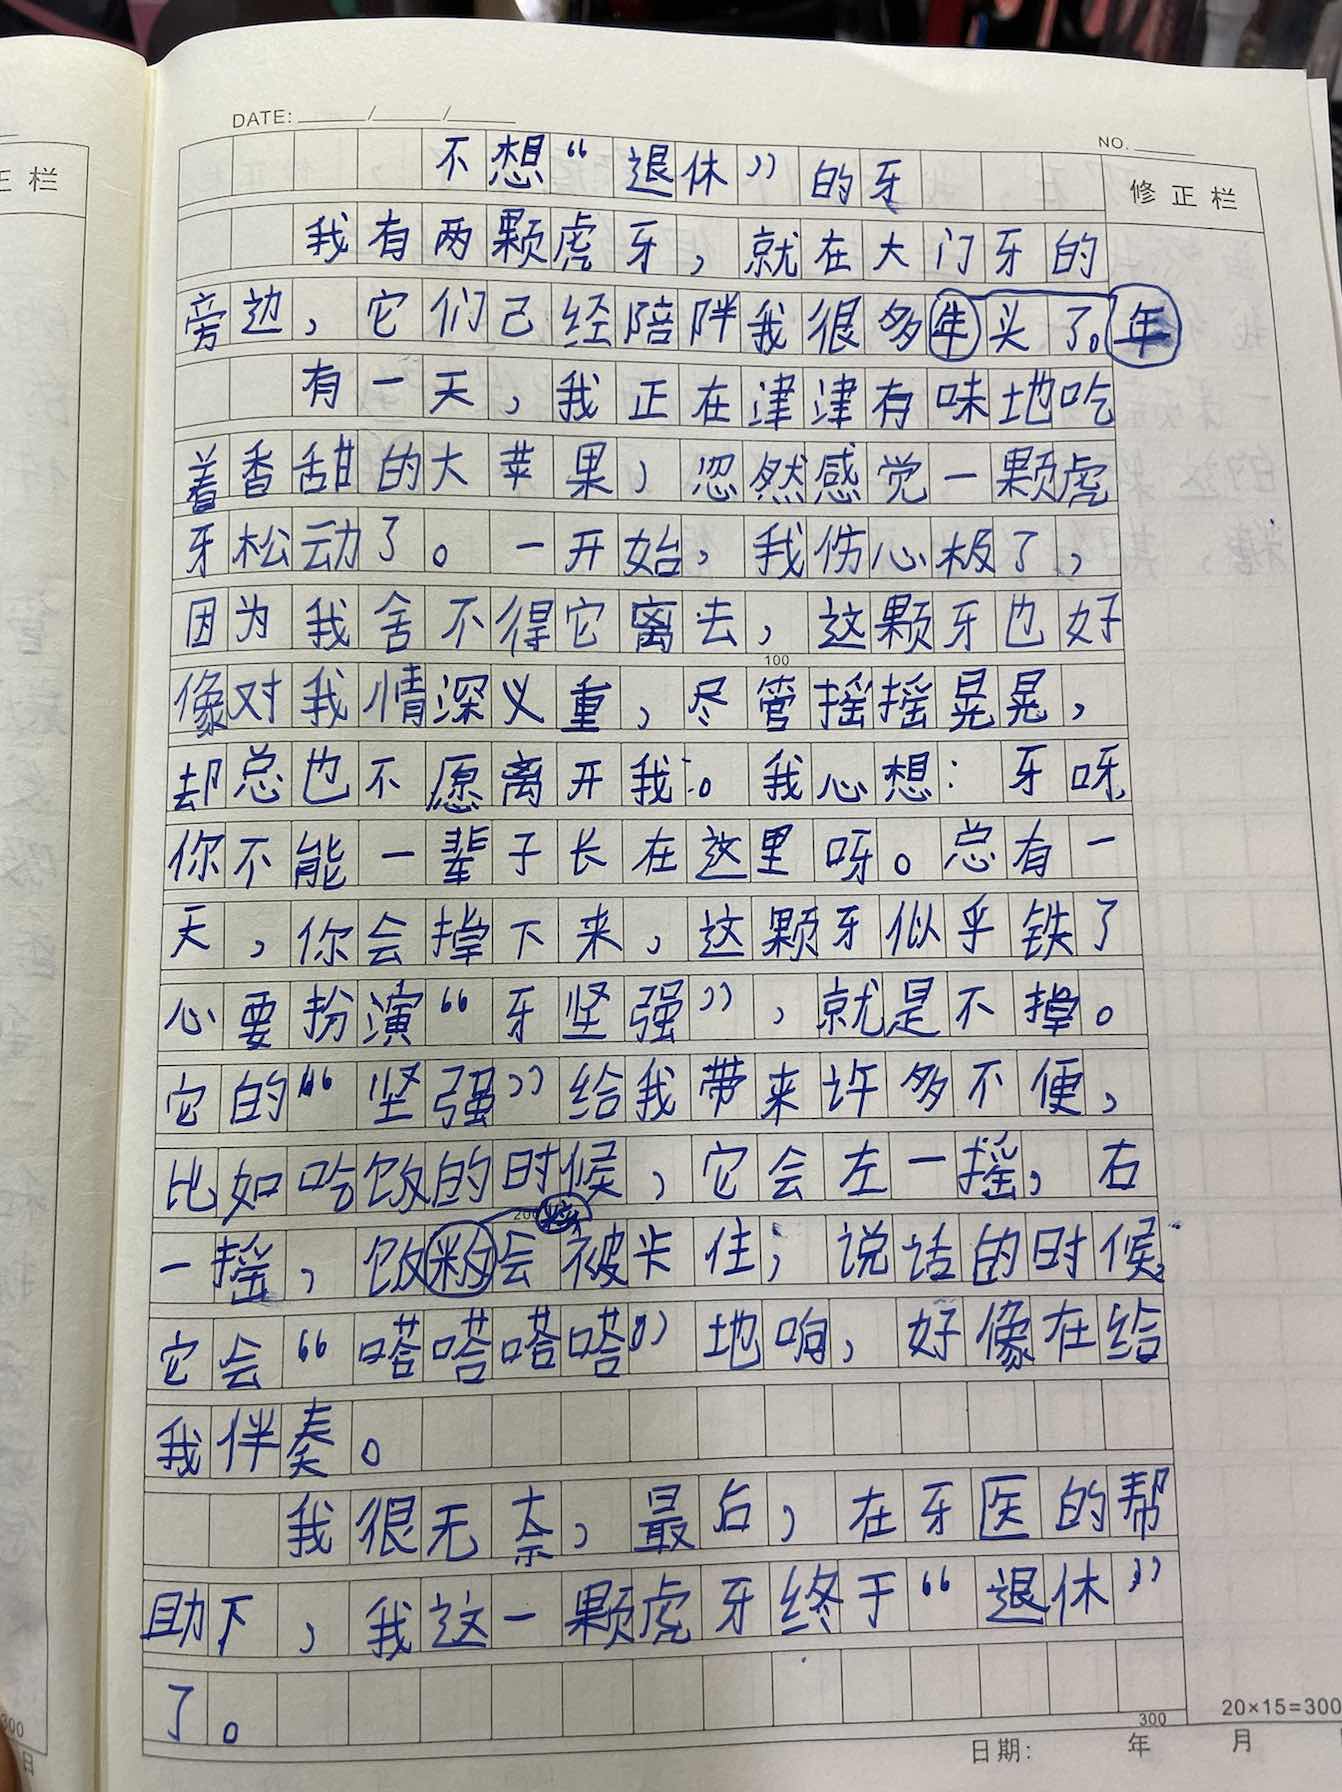 DATE: / /
NO.
正栏
修正栏
不想“退休”的牙
我有两颗虎牙，就在大门牙的
旁边，它们己经陪伴我很多年头了。年
有一天，我正在津津有味地吃
着香甜的大苹果，忽然感觉一颗虎
牙松动了。一开始，我伤心极了，
因为我舍不得它离去，这颗牙也好
100
像对我情深义重，尽管摇摇晃晃，
却总也不愿离开我。我心想：牙呀，
你不能一辈子长在这里呀。总有一
天，你会掉下来，这颗牙似乎铁了
心要扮演“牙坚强”，就是不掉。
它的“坚强”给我带来许多不便，
比如吃饭的时候，它会左一摇，右
200
一摇，饭粉会被卡住；说话的时候，
它会“嗒嗒嗒嗒”地响，好像在给
我伴奏。
我很无奈，最后，在牙医的帮
助下，我这一颗虎牙终于“退休”
了。
300
20×15=300
日期： 年 月
300
日